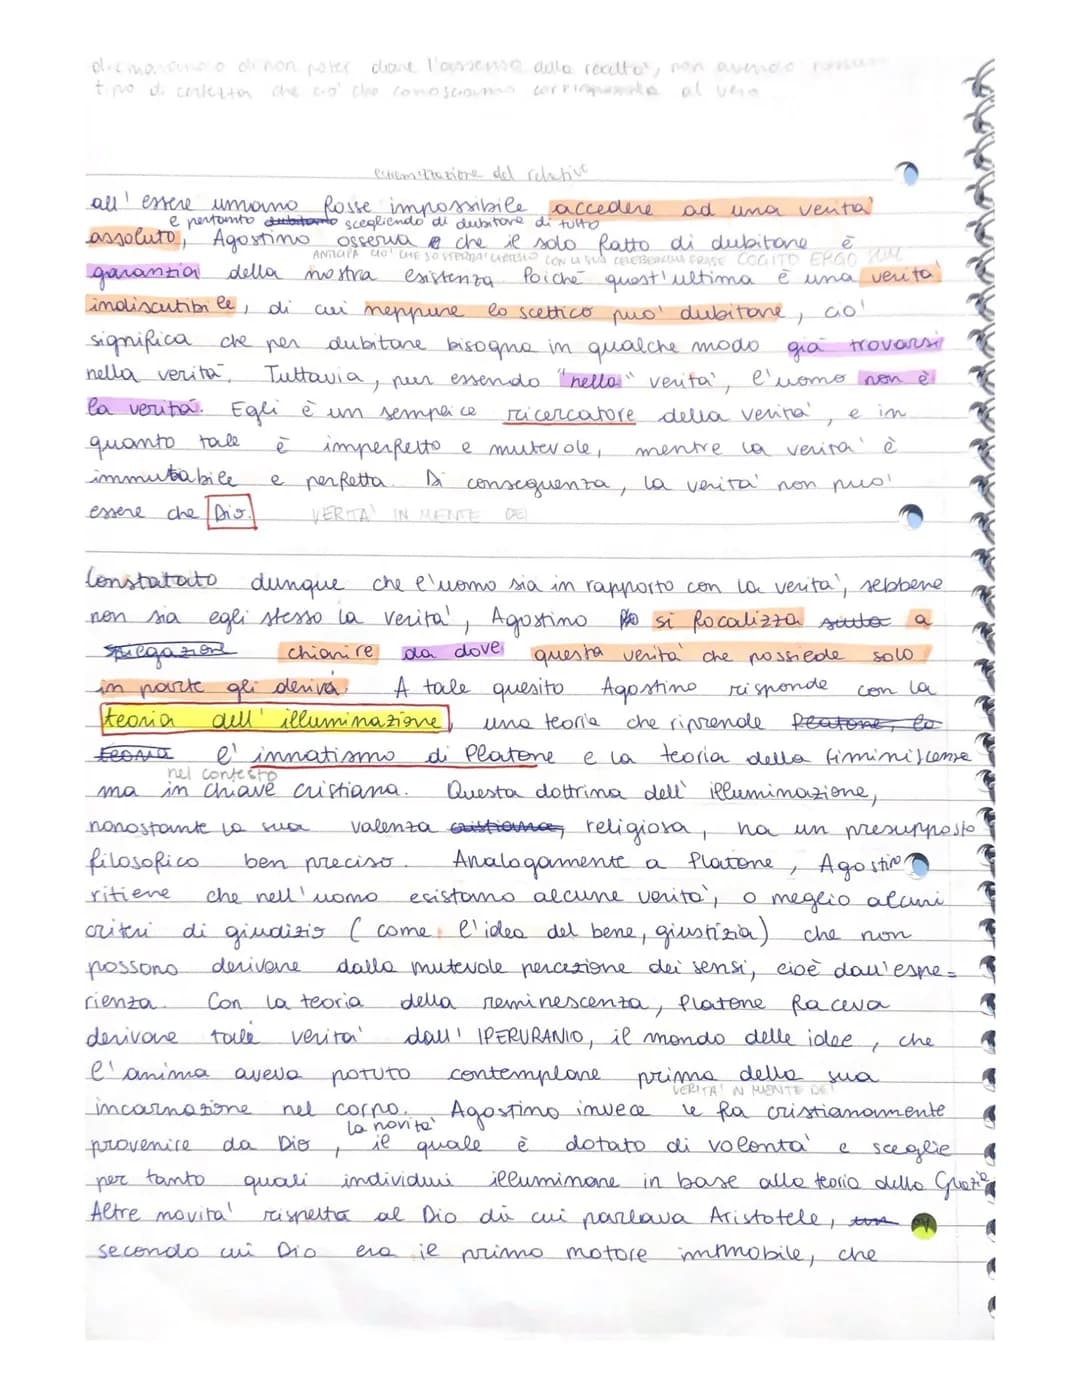 di non poter dare l'assenso alla realtà, non avendo nessun
tipo di certezza che ciò che conosciamo corrisponda al vero
estremizzazione del relative
all'essere umano fosse impossibile accedere ad una verità
e pertanto dubitando scegliendo di dubitare di tutto
assoluto, Agostino osserva e che il solo fatto di dubitare è
ANTICIPA CIO' CHE SOSTERRA' CARTESIO CON LA SUA CELEBERRIMA FRASE COGITO ERGO SUM
garanzia della nostra esistenza Poiché quest'ultima è una verità
indiscutibile, di cui neppure lo scettico può dubitare, ciò
significa che per dubitare bisogna in qualche modo già trovarsi
nella verità. Tuttavia, pur essendo "nella" verità, l'uomo non è
la verità. Egli è un semplice ricercatore della verità, e in
quanto tale è imperfetto e mutevole, mentre la verità è
immutabile e perfetta. Di conseguenza, la verità non può
essere che Dio. VERITA' IN MENTE DEI
Constatato dunque che l'uomo sia in rapporto con la verità, sebbene
non sia egli stesso la verità, Agostino si focalizza a
spiegazione chiarire da dove questa verità che possiede solo
in parte gli deriva. A tale quesito Agostino risponde con la
teoria dell'illuminazione, una teoria che riprende Platone, la
teoria l'innatismo di Platone e la teoria della riminiscenza
nel contesto
ma in chiave cristiana. Questa dottrina dell'illuminazione,
nonostante la sua valenza cristiana, religiosa, ha un presupposto
filosofico ben preciso. Analogamente a Platone, Agostino
ritiene che nell'uomo esistano alcune verità, o meglio alcuni
criteri di giudizio (come l'idea del bene, giustizia) che non
possono derivare dalla mutevole percezione dei sensi, cioè dall'espe=
rienza. Con la teoria della reminescenza, Platone faceva
derivare tale verità dall'IPERURANIO, il mondo delle idee, che
l'anima aveva potuto contemplare prima della sua
VERITA' IN MENTE DEI
incarnazione nel corpo. Agostino invece le fa cristianamente
la novità
provenire da Dio, il quale è dotato di volontà e sceglie
per tanto quali individui illuminare in base alla teoria della Grazia
Altre novità rispetto al Dio di cui parlava Aristotele,
secondo cui Dio era il primo motore immobile, che